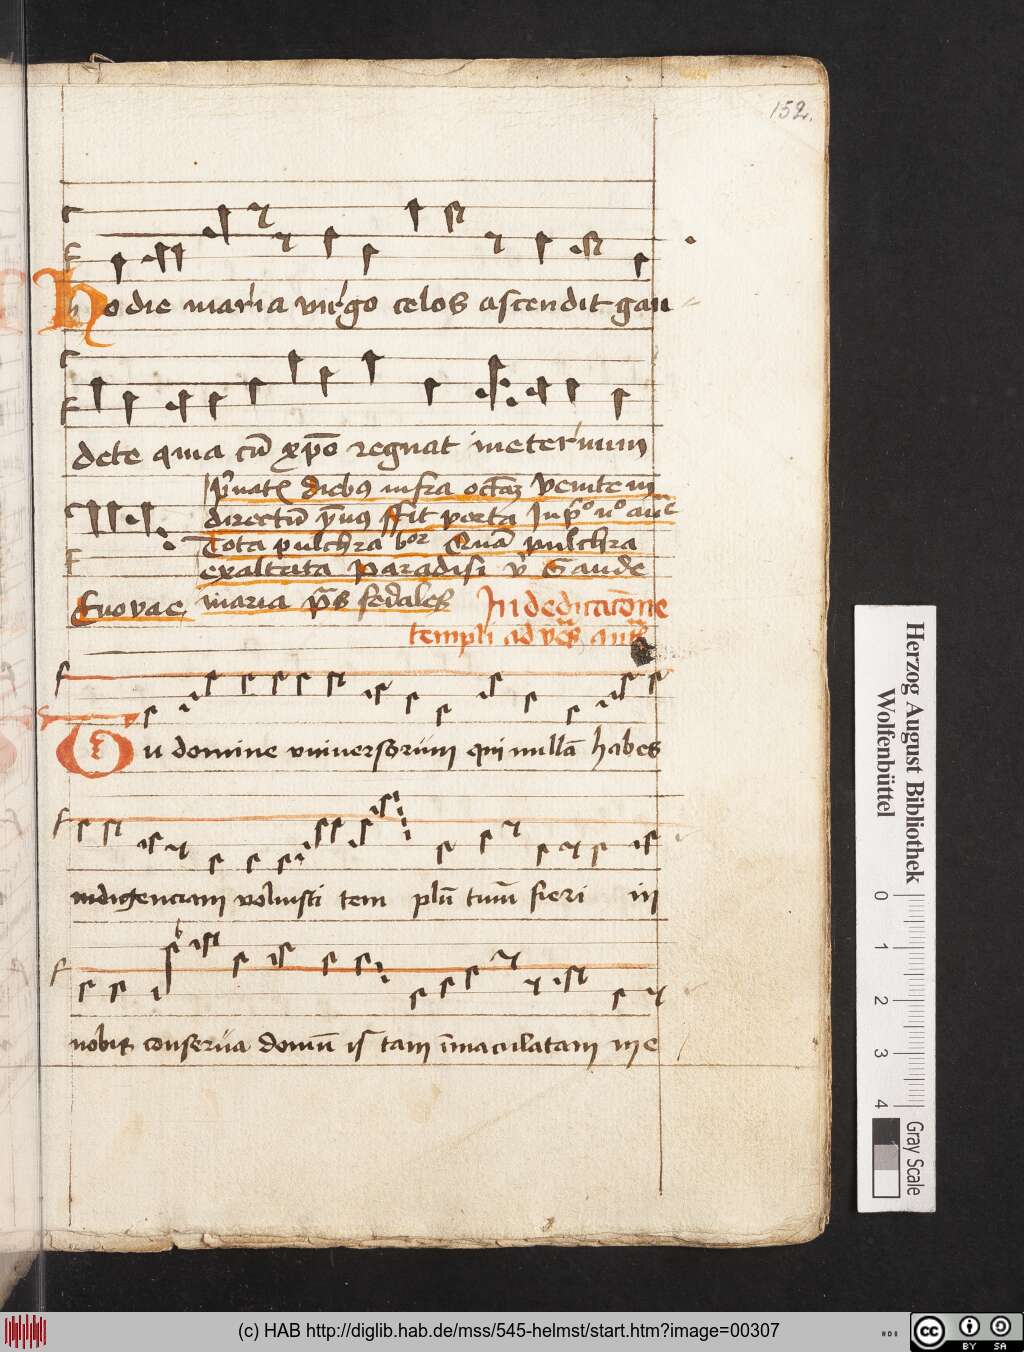 152.
hodie maria virgo celos ascendit gau
dete quia cū xp̄o regnat ineternum
diebus infra octaȝ Venite in
directū Fit porta
Tota pulchra Quā pulchra
exaltata paradisi v̄ Gaude
Euovae maria p̄s
In dedicacōne
templi ad
Tu domine vniuersorum qui nullā habes
indigenciam voluisti tem plū tuū fieri in
nobis conserua domū is tam īmaculatam in e
Herzog August Bibliothek
Wolfenbüttel
0 1 2 3 4
Gray Scale
(c) HAB http://diglib.hab.de/mss/545-helmst/start.htm?image=00307
cc BY SA